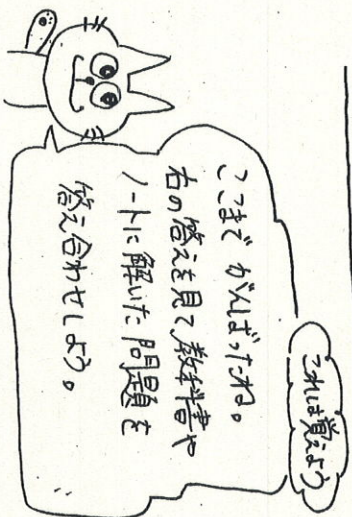 これは覚えよう
ここまで がんばったね。
右の答えを見て教科書や
ノートに解いた問題を
答え合わせしよう。